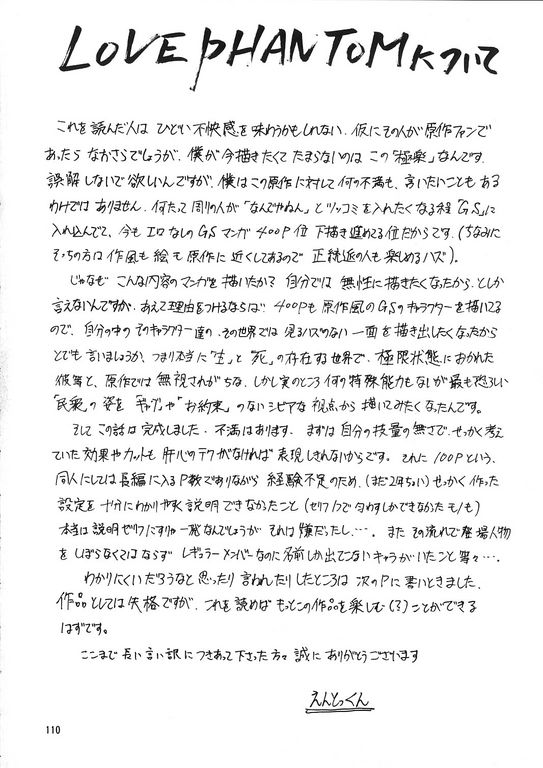 LOVE PHANTOMについて
これを読んだ人は ひどい不快感を味わうかもしれない. 仮にその人が原作ファンで
あったら なおさらでしょうが. 僕が今描きたくてたまらないのは この「極楽」なんです.
誤解しないで欲しいんですが, 僕はこの原作に対して何の不満も、言いたいことも ある
わけでは ありません. 何たって 周りの人が「なんでやねん」とツッコミを入れたくなる程「GS」に
入れ込んでて、今も エロなしの GSマンガ 400P位 下描き進めてる位だからです. (ちなみに
そっちの方は作風も 絵も 原作に 近くしてあるので 正統派の人も楽しめるハズ).
じゃなぜ こんな内容のマンガを描いたか? 自分では 無性に描きたくなったから、としか
言えないんですが、あえて理由をつけるならば、400Pも 原作風のGSのキャラクターを描いてる
ので、自分の中の そのキャラクター達の、その世界では 見るハズのない 一面を描き出したくなったから
とでも言いましょうか、つまり本当に「生」と「死」の存在する世界で、極限状態に おかれた
彼等と、原作では 無視されがちな、しかし実のところ 何の特殊能力もないが最も恐ろしい
「民衆」の 姿を 「ギャグ」や「お約束」のないシビアな 視点から 描いてみたくなったんです。
そして この話は完成しました. 不満はあります. まずは自分の技量の無さで、せっかく考え
ていた効果やカットも 肝心のテクがなければ 表現しきれないからです。それに 100Pという、
同人にしては長編に入るP数でありながら 経験不足のため、(まだ2年ちょい) せっかく作った
設定を十分にわかりやすく説明できなかったこと (セリフで匂わすしかできなかったモノも)
本当は説明ゼリフにすりゃ一発なんでしょうが それは嫌だったし…. また その流れで登場人物
を しぼらなくてはならず レギュラーメンバーなのに名前しか出てこないキャラがいたこと等々….
わかりにくいだろうなと思ったり 言われたりしたところは 次のPに書いときました.
作品としては失格ですが、これを読めば もっとこの作品を楽しむ(?)ことができる
はずです。
ここまで長い言い訳につきあって下さった方々 誠に ありがとうございます
えんとっくん
110